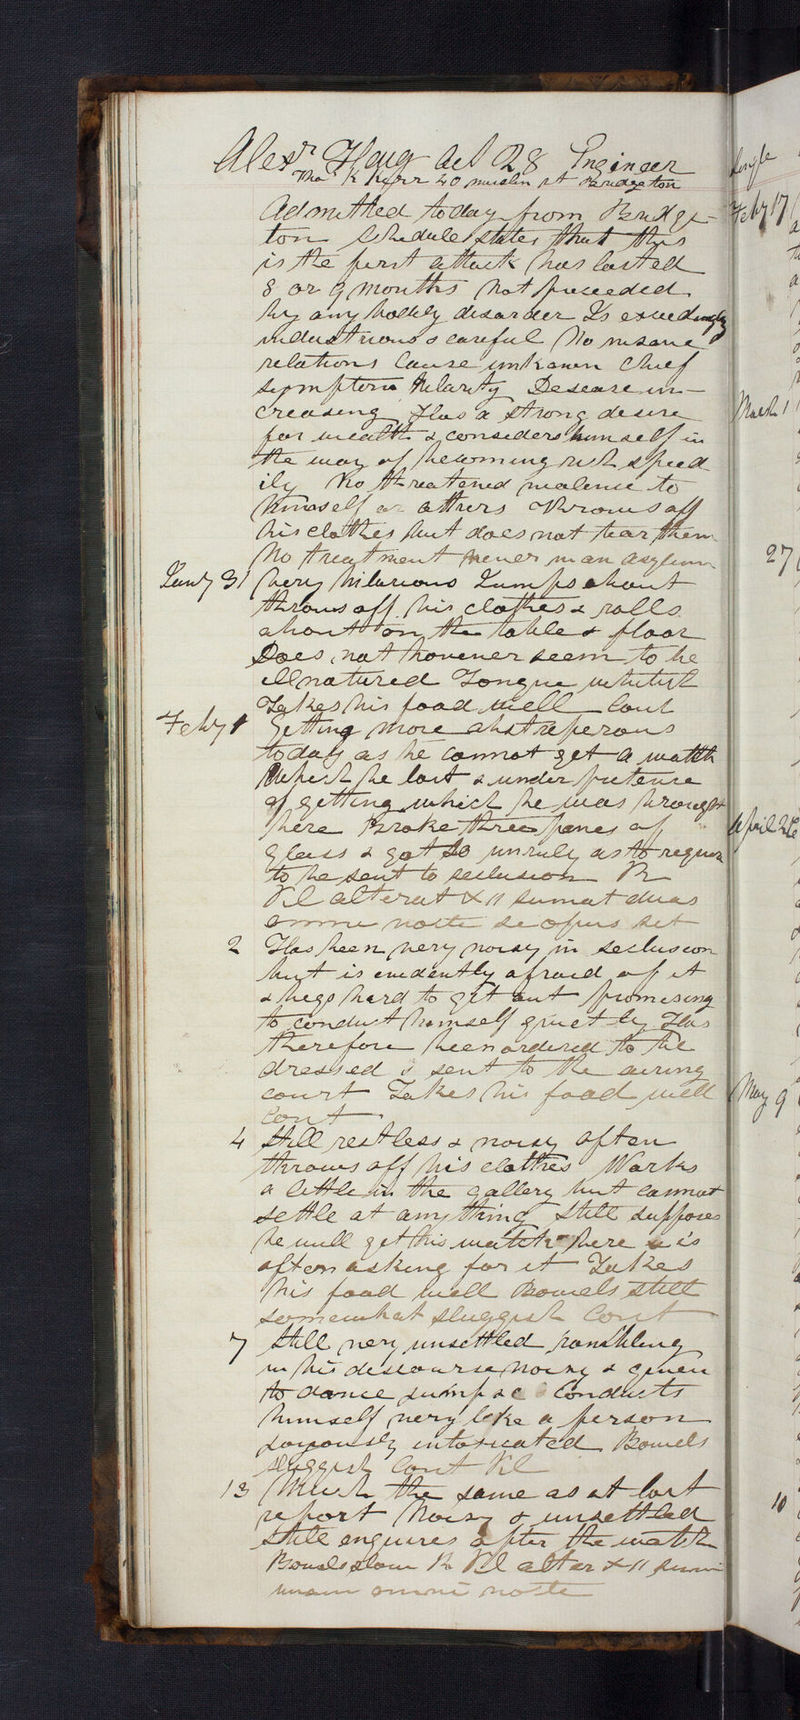 Alexr Haug Aet 28 Engineer
Single
Thos K Kerr 20 muslin st Bridgeton
Admitted today from Bridge-
Feby 17
ton Schedule states that this
is the first attack has lasted
8 or 9 months not preceeded
by any bodily disorder Is exceedingly
industrious & careful No insane
relations Cause unknown Chief
symptom hilarity Disease in-
creasing Has a strong desire
March 1
for wealth & considers himself in
the way of becoming rich speed
ily No threatened violence to
himself or others Throws off
his clothes but does not tear them
No treatment never in an asylum
27
Jany 31 Very hilarious Jumps about
throws off his clothes & rolls
about on the table & floor
Does not however seem to be
illnatured Tongue whitish
Takes his food well Cont
Feby 1 Getting more obstreperous
today as he cannot get a watch
which he lost & under pretense
of getting which he was brought
here Broke three panes of
April 26
glass & got so unruly as to require
to be sent to seclusion Rx
Pil alterat XII sumat duas
omni nocte si opus sit
2 Has been very noisy in seclusion
but is evidently afraid of it
& begs hard to get out promising
to conduct himself quietly Has
therefore been ordered to be
dressed & sent to the airing
court Takes his food well
May 9
Cont
4 Still restless & noisy often
throws off his clothes Works
a little in the gallery but cannot
settle at anything Still supposes
he will get his watch here & is
often asking for it Takes
his food well Bowels still
somewhat sluggish Cont
7 Still very unsettled rambling
in his discourse noisy & given
to dance jump &c Conducts
himself very like a person
joyously intoxicated Bowels
sluggish Cont Pil
13 Much the same as at last
report Noisy & unsettled
10
Still enquires after the watch
Bowels slow Rx Pil alter XII
unam omni nocte